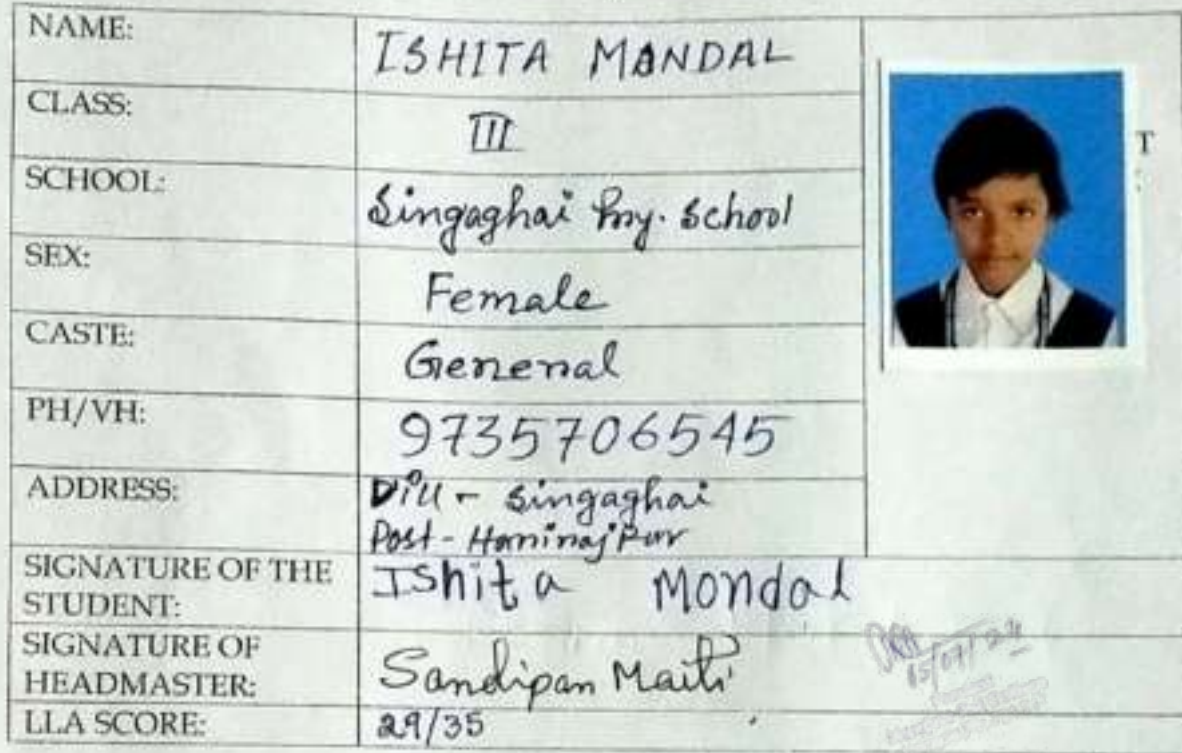 NAME: ISHITA MANDAL
CLASS: III
T
SCHOOL: Singaghai Pry. School
SEX: Female
CASTE: General
PH/VH: 9735706545
ADDRESS: Vill - Singaghai
Post - Harinajpur
SIGNATURE OF THE STUDENT: Ishita Mondal
SIGNATURE OF HEADMASTER: Sandipan Maiti
15/07/24
LLA SCORE: 29/35